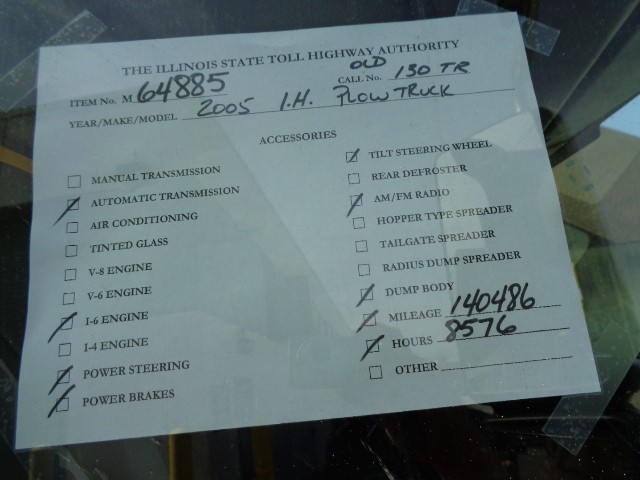 THE ILLINOIS STATE TOLL HIGHWAY AUTHORITY
OLD
ITEM No. M 64885 CALL No. 130 TR
YEAR/MAKE/MODEL 2005 I.H. PLOW TRUCK
ACCESSORIES
MANUAL TRANSMISSION
AUTOMATIC TRANSMISSION
AIR CONDITIONING
TINTED GLASS
V-8 ENGINE
V-6 ENGINE
I-6 ENGINE
I-4 ENGINE
POWER STEERING
POWER BRAKES
TILT STEERING WHEEL
REAR DEFROSTER
AM/FM RADIO
HOPPER TYPE SPREADER
TAILGATE SPREADER
RADIUS DUMP SPREADER
DUMP BODY
MILEAGE 140486
HOURS 8576
OTHER